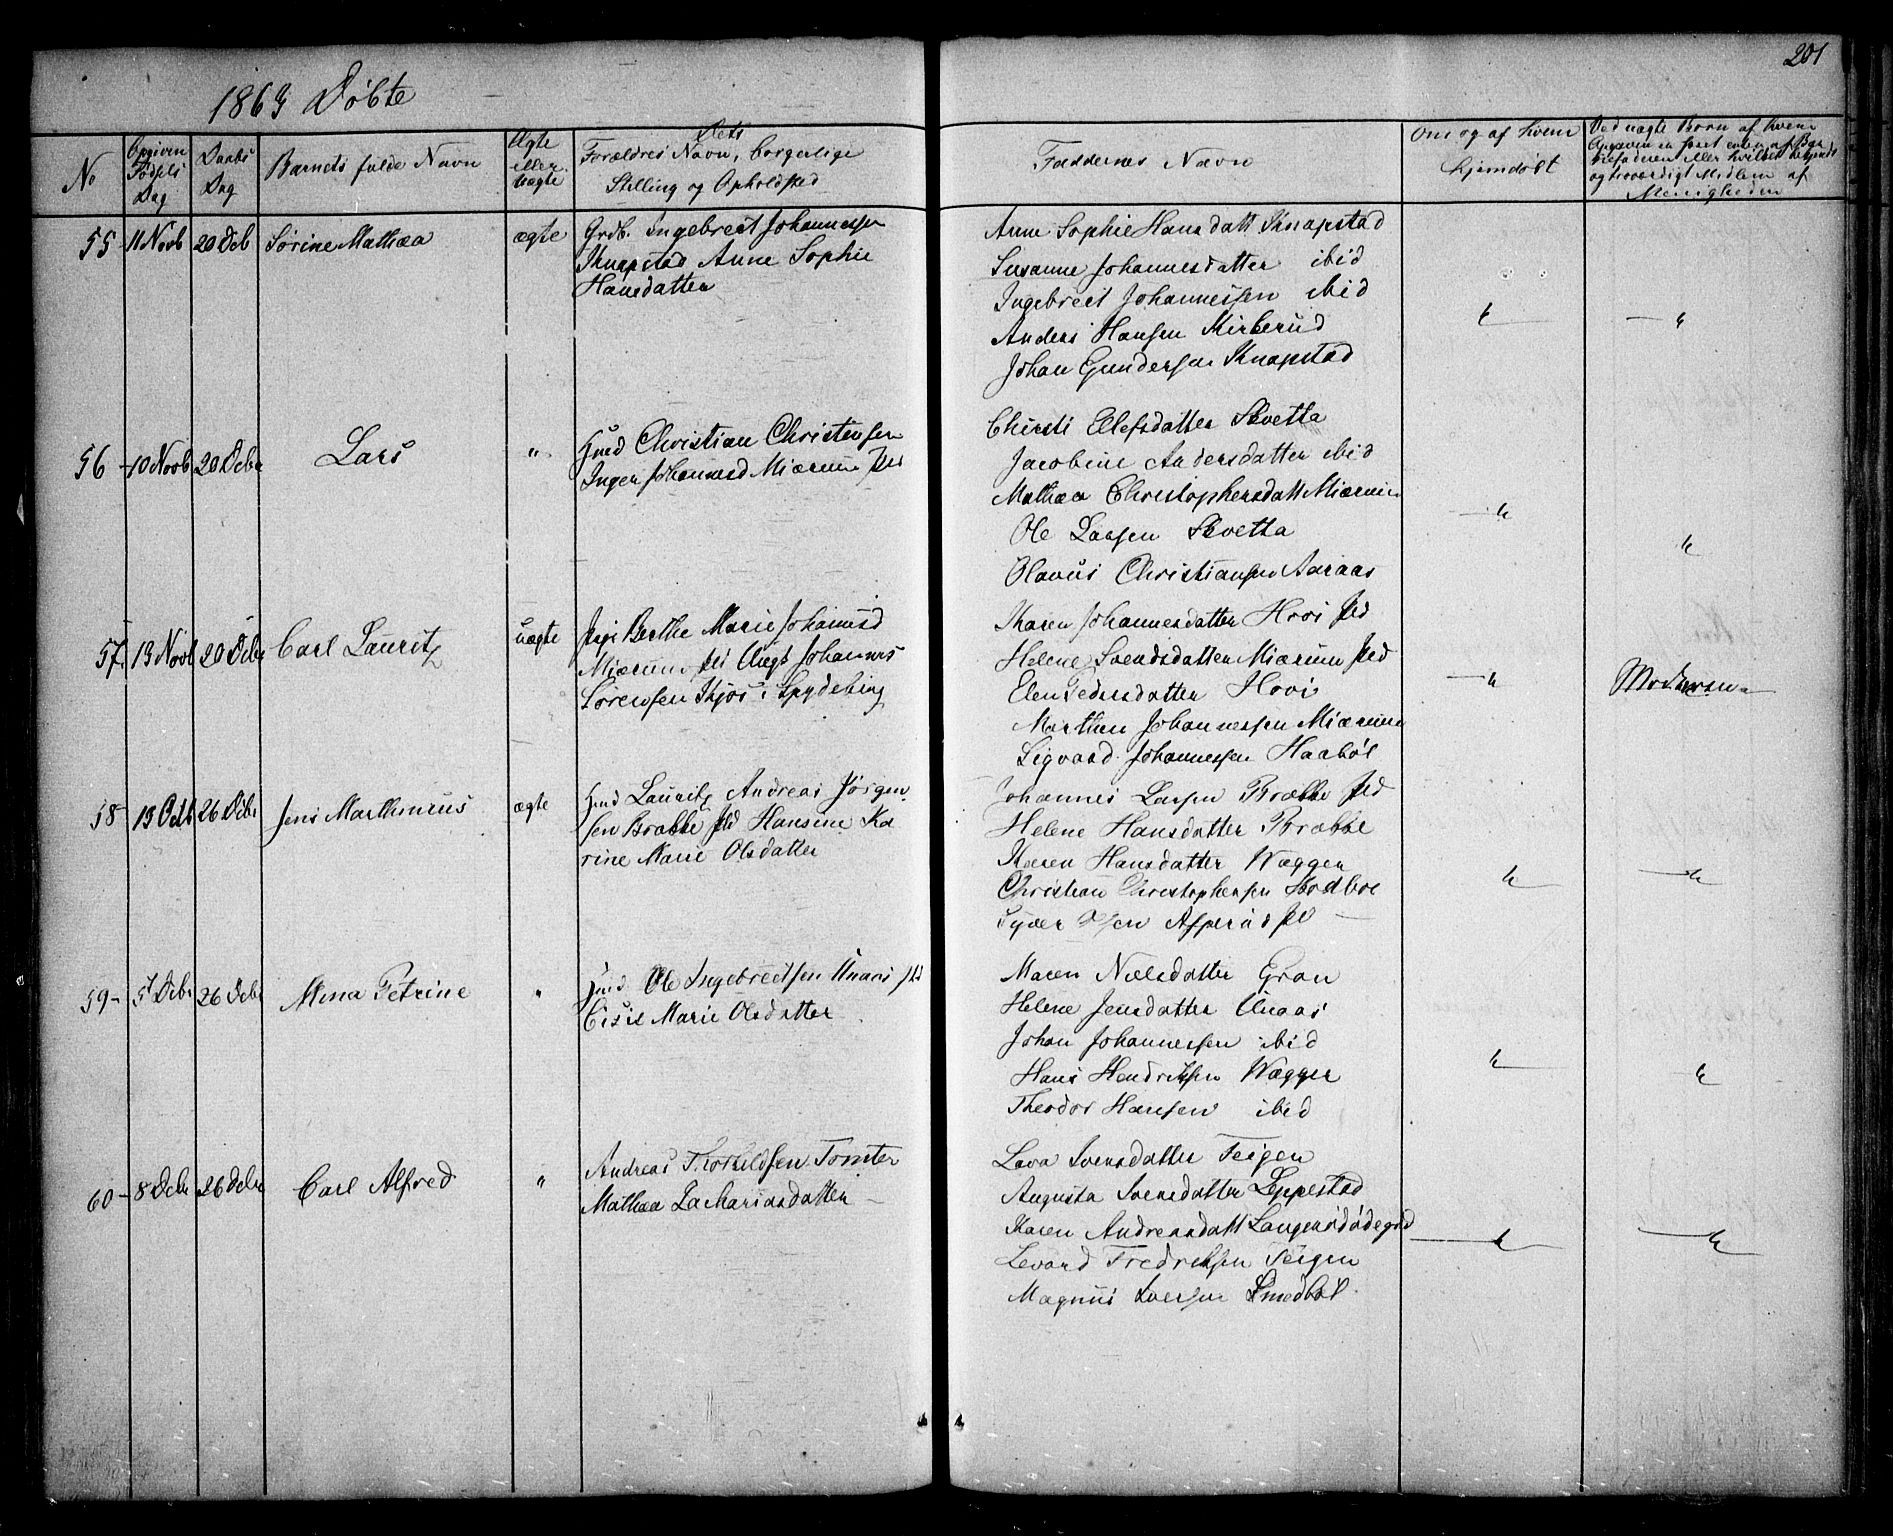 201
1863 Døbte
No
Opgiven Fødsels Dag
Daabs Dag
Barnets fulde Navn
Ægte eller Uægte
Dets
Forældres Navn, borgerlige
Stilling og Opholdsted
Faddernes Navn
Om og af hvem
hjemdøbt
Ved uægte Børn af hvem
Menigheden
55 11 Novb 20 Deb Sørine Mathæa ægte Grdb. Ingebrect Johannessen
Knapstad Anne Sophie
Hansdatter
Anne Sophie Hansdatt Knapstad
Susanne Johannesdatter ibid
Ingebrect Johannessen ibid
Anders Hansen Mirberud
Johan Gundersen Knapstad
56 10 Novb 20 Debr Lars " Hmd Christian Christensen
Inger Johannesd Miærum
Chirsti Elefsdatter Skvetta
Jacobine Andersdatter ibid
Mathæa Christophersdatt Miærum
Ole Larsen Skvetta
Olavus Christiansen Aaraas
57 13 Novb 20 Debr Carl Lauritz uægte Pige Berthe Marie Johannesd
Miærum Ungk Johannes
Sørensen Skjøs i Spydeberg
Karen Johannesdatter Hovi
Helene Svendsdatter Miærum
Elen Pedersdatter Hovi
Marthin Johannessen Miærum
Sigvard Johannessen Haabøl
Moderen
58 13 Octb 26 Debr Jens Marthinius ægte Hmd Lauritz Andreas Jørgen
sen Brække Hansine Ka
rine Marie Olsdatter
Johannes Larsen Brække
Helene Hansdatter Brække
Karen Hansdatter Wægger
Christian Christophersen
59 5 Debr 26 Debr Mina Petrine " Hmd Ole Ingebrectsen Unaas
Cisil Marie Olsdatter
Maren Nielsdatter Gran
Helene Jensdatter Unaas
Johan Johannessen ibid
Hans Hendriksen Wægger
Theodor Hansen ibid
60 8 Debr 26 Debr Carl Alfred " Andreas Thorkildsen Tomter
Mathæa Zachariasdatter
Lava Svensdatter Teigen
Augusta Svensdatter Leppestad
Karen Andreasdatt
Levard Fredriksen Teigen
Magnus Iversen Smedbøl